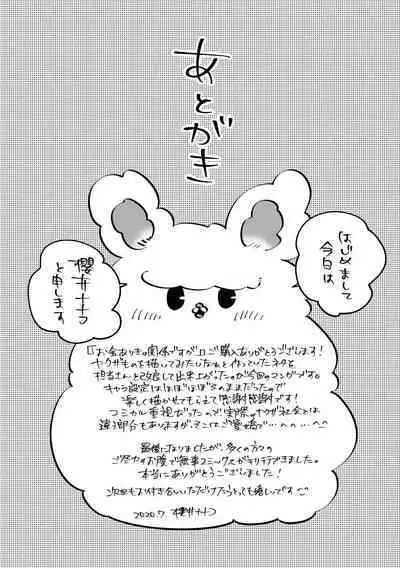 あとがき
はじめまして
今日は
櫻井ナナコ
と申します
「お金ありきの関係ですが」ご購入ありがとうございます!
ヤクザものを描いてみたいなぁと作っていたネタを
担当さんと改稿して出来上がったのが今回のマンガです。
キャラ設定はほぼほぼそのままだったので
楽しく描かせてもらえて感謝感謝です!
コミカル重視だったので実際のヤクザ社会とは
違う部分もありますが、そこはご愛嬌で…
最後になりましたが、多くの方々の
ご尽力のお陰で無事コミックスが出せました。
本当にありがとうございました!
次回もお付き合いいただけたらとっても嬉しいです
2020.7. 櫻井ナナコ